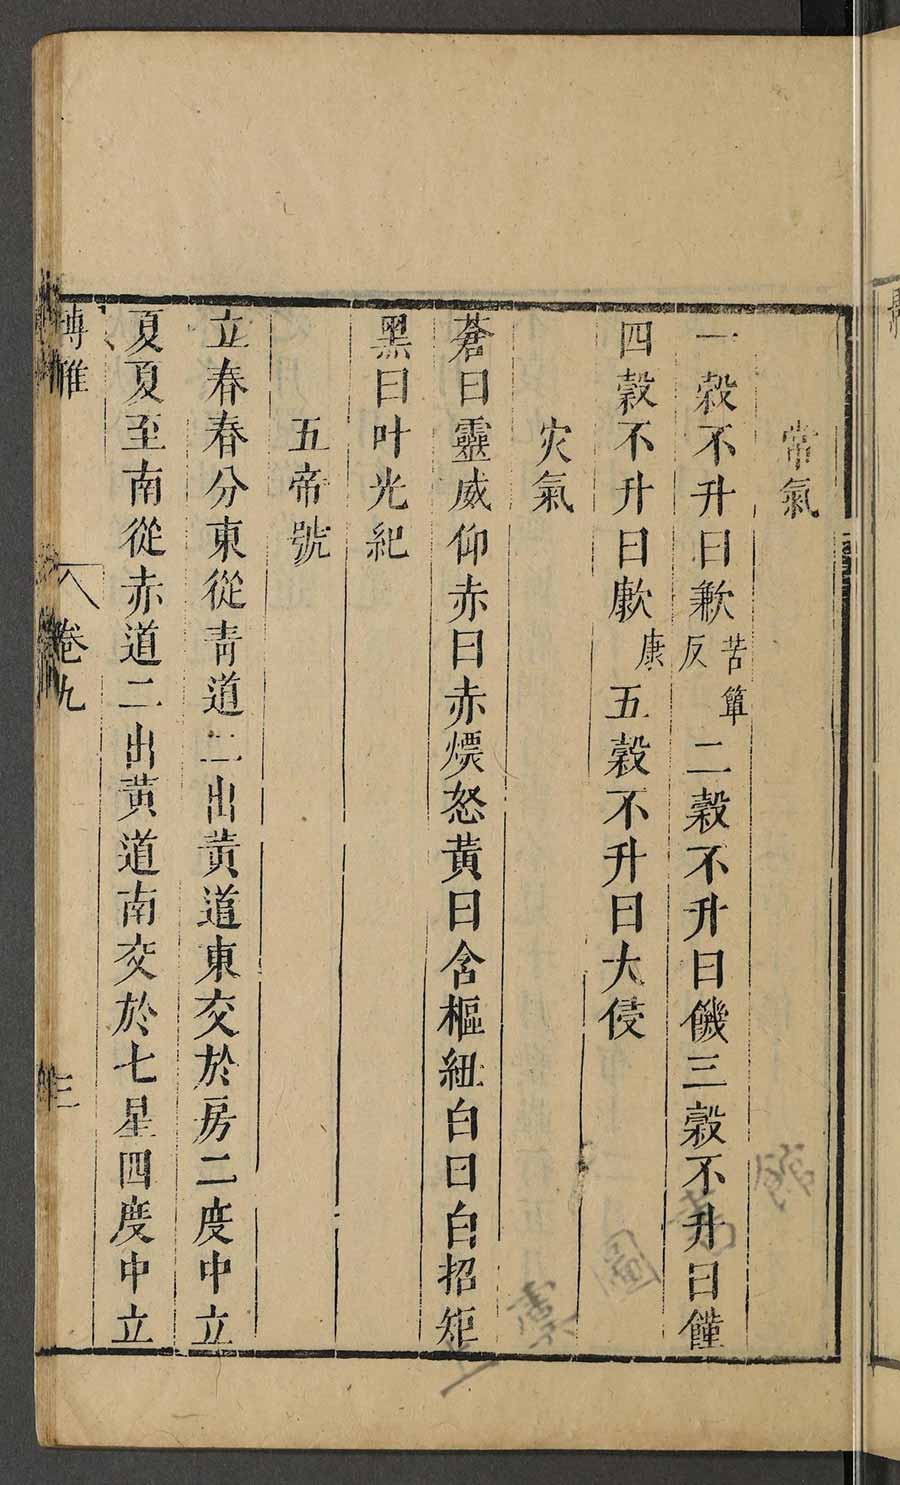 常氣
一穀不升曰歉苦簟反二穀不升曰饑三穀不升曰饉
四穀不升曰歑康五穀不升曰大侵
灾氣
蒼曰靈威仰赤曰赤熛怒黃曰含樞紐白曰白招矩
黑曰叶光紀
五帝號
立春春分東從青道二出黃道東交於房二度中立
夏夏至南從赤道二出黃道南交於七星四度中立
博雅 卷九 三